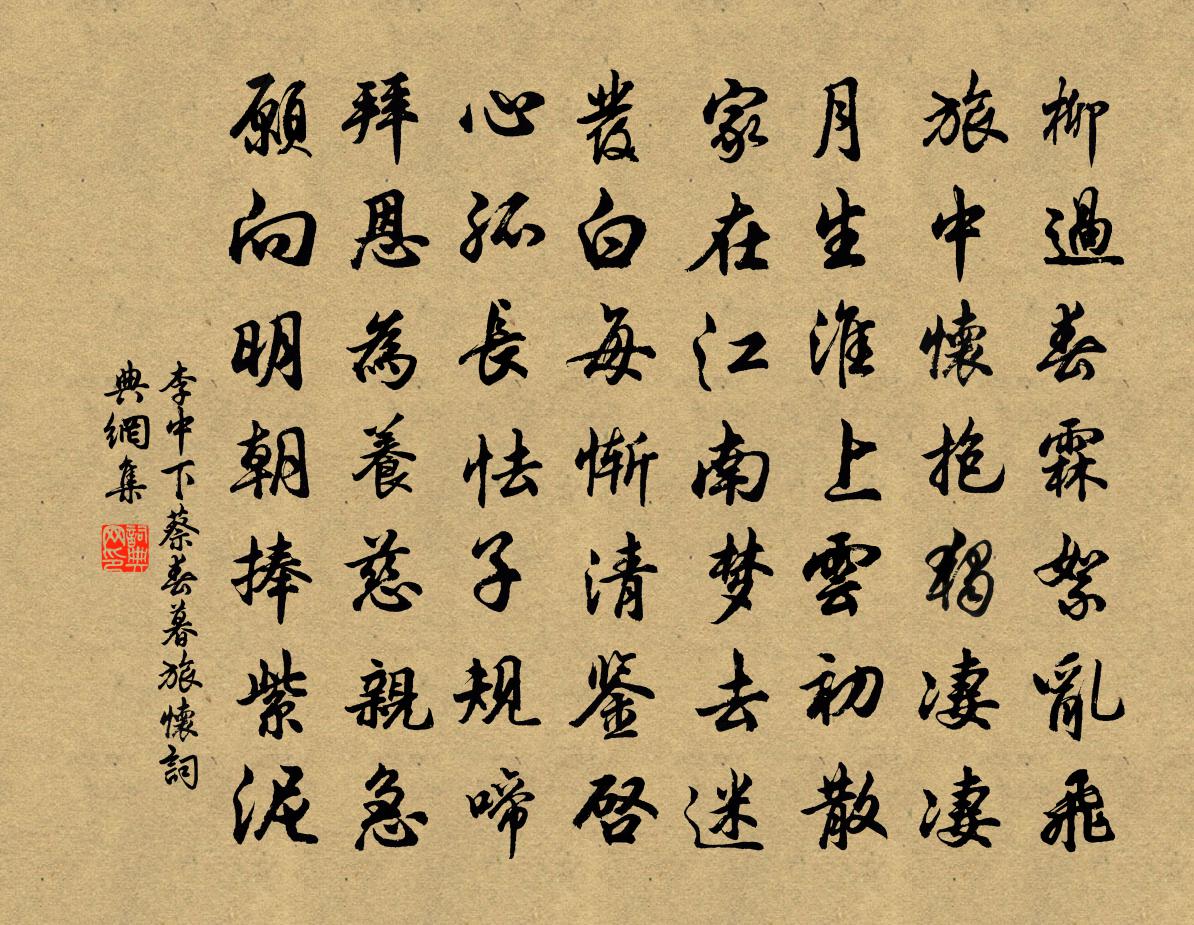 柳過春霖絮亂飛
旅中懷抱獨凄凄
月生淮上雲初散
家在江南梦去迷
發白每慚清鉴启
心孤長怯子規啼
拜恩為養慈親急
願向明朝捧紫泥
李中下蔡春暮旅懷詞
典網集
詞典网印